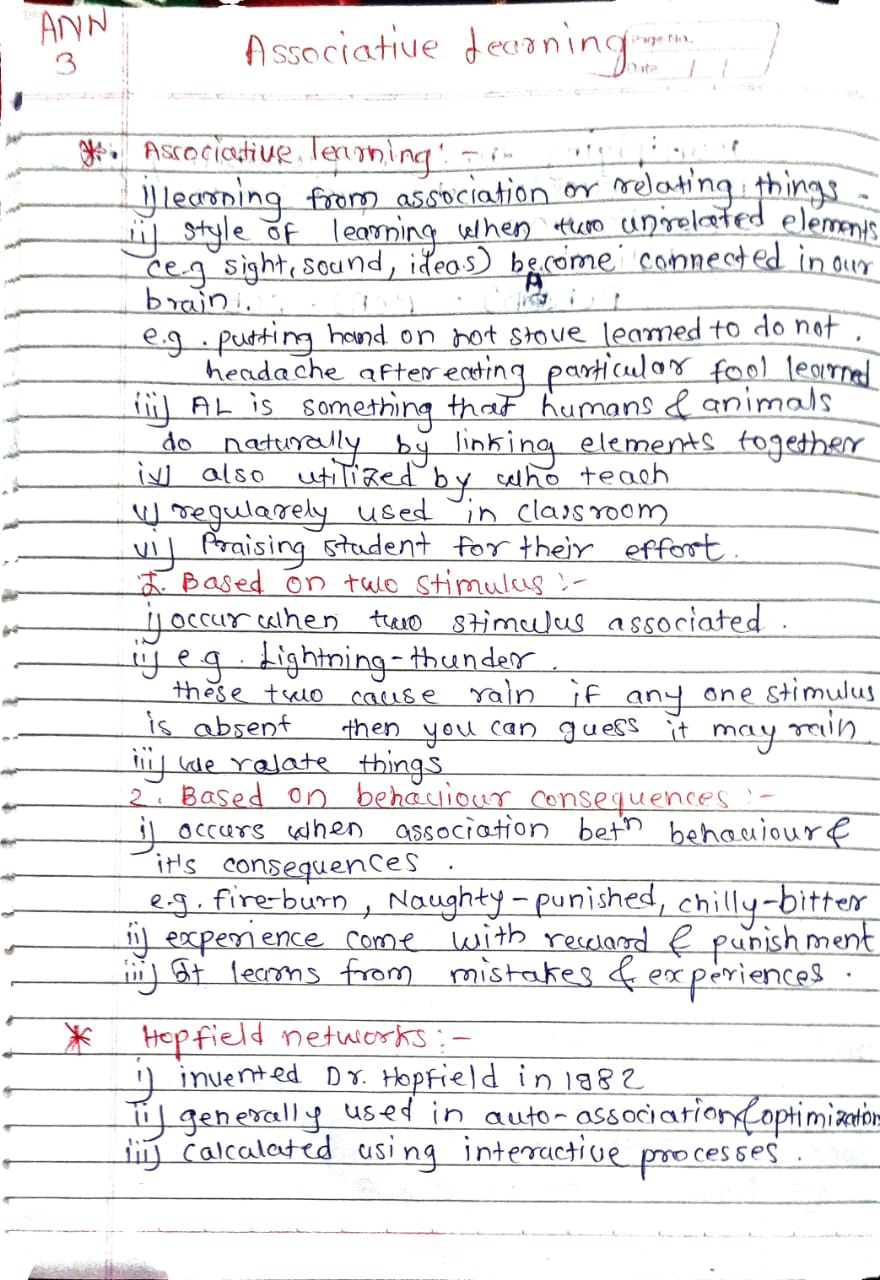 ANN
3
Associative Learning
Page No.
Date / /
*. Associative learning :-
i) learning from association or relating things.
ii) style of learning when two unrelated elements
(e.g sight, sound, ideas) become connected in our
brain.
e.g. putting hand on hot stove learned to do not.
headache after eating particular fool learned
iii) AL is something that humans & animals
do naturally by linking elements together
iv) also utilized by who teach
v) regularely used in classroom
vi) Praising student for their effort.
1. Based on two stimulus :-
i) occur when two stimulus associated.
ii) e.g. Lightning-thunder.
these two cause rain if any one stimulus
is absent then you can guess it may rain.
iii) we ralate things
2. Based on behaviour consequences :-
i) occurs when association betn behaviour &
it's consequences.
e.g. fire-burn, Naughty-punished, chilly-bitter
ii) experience come with reward & punishment
iii) It learns from mistakes & experiences.
* Hopfield networks :-
i) invented Dr. Hopfield in 1982
ii) generally used in auto-association & optimization
iii) calculated using interactive processes.